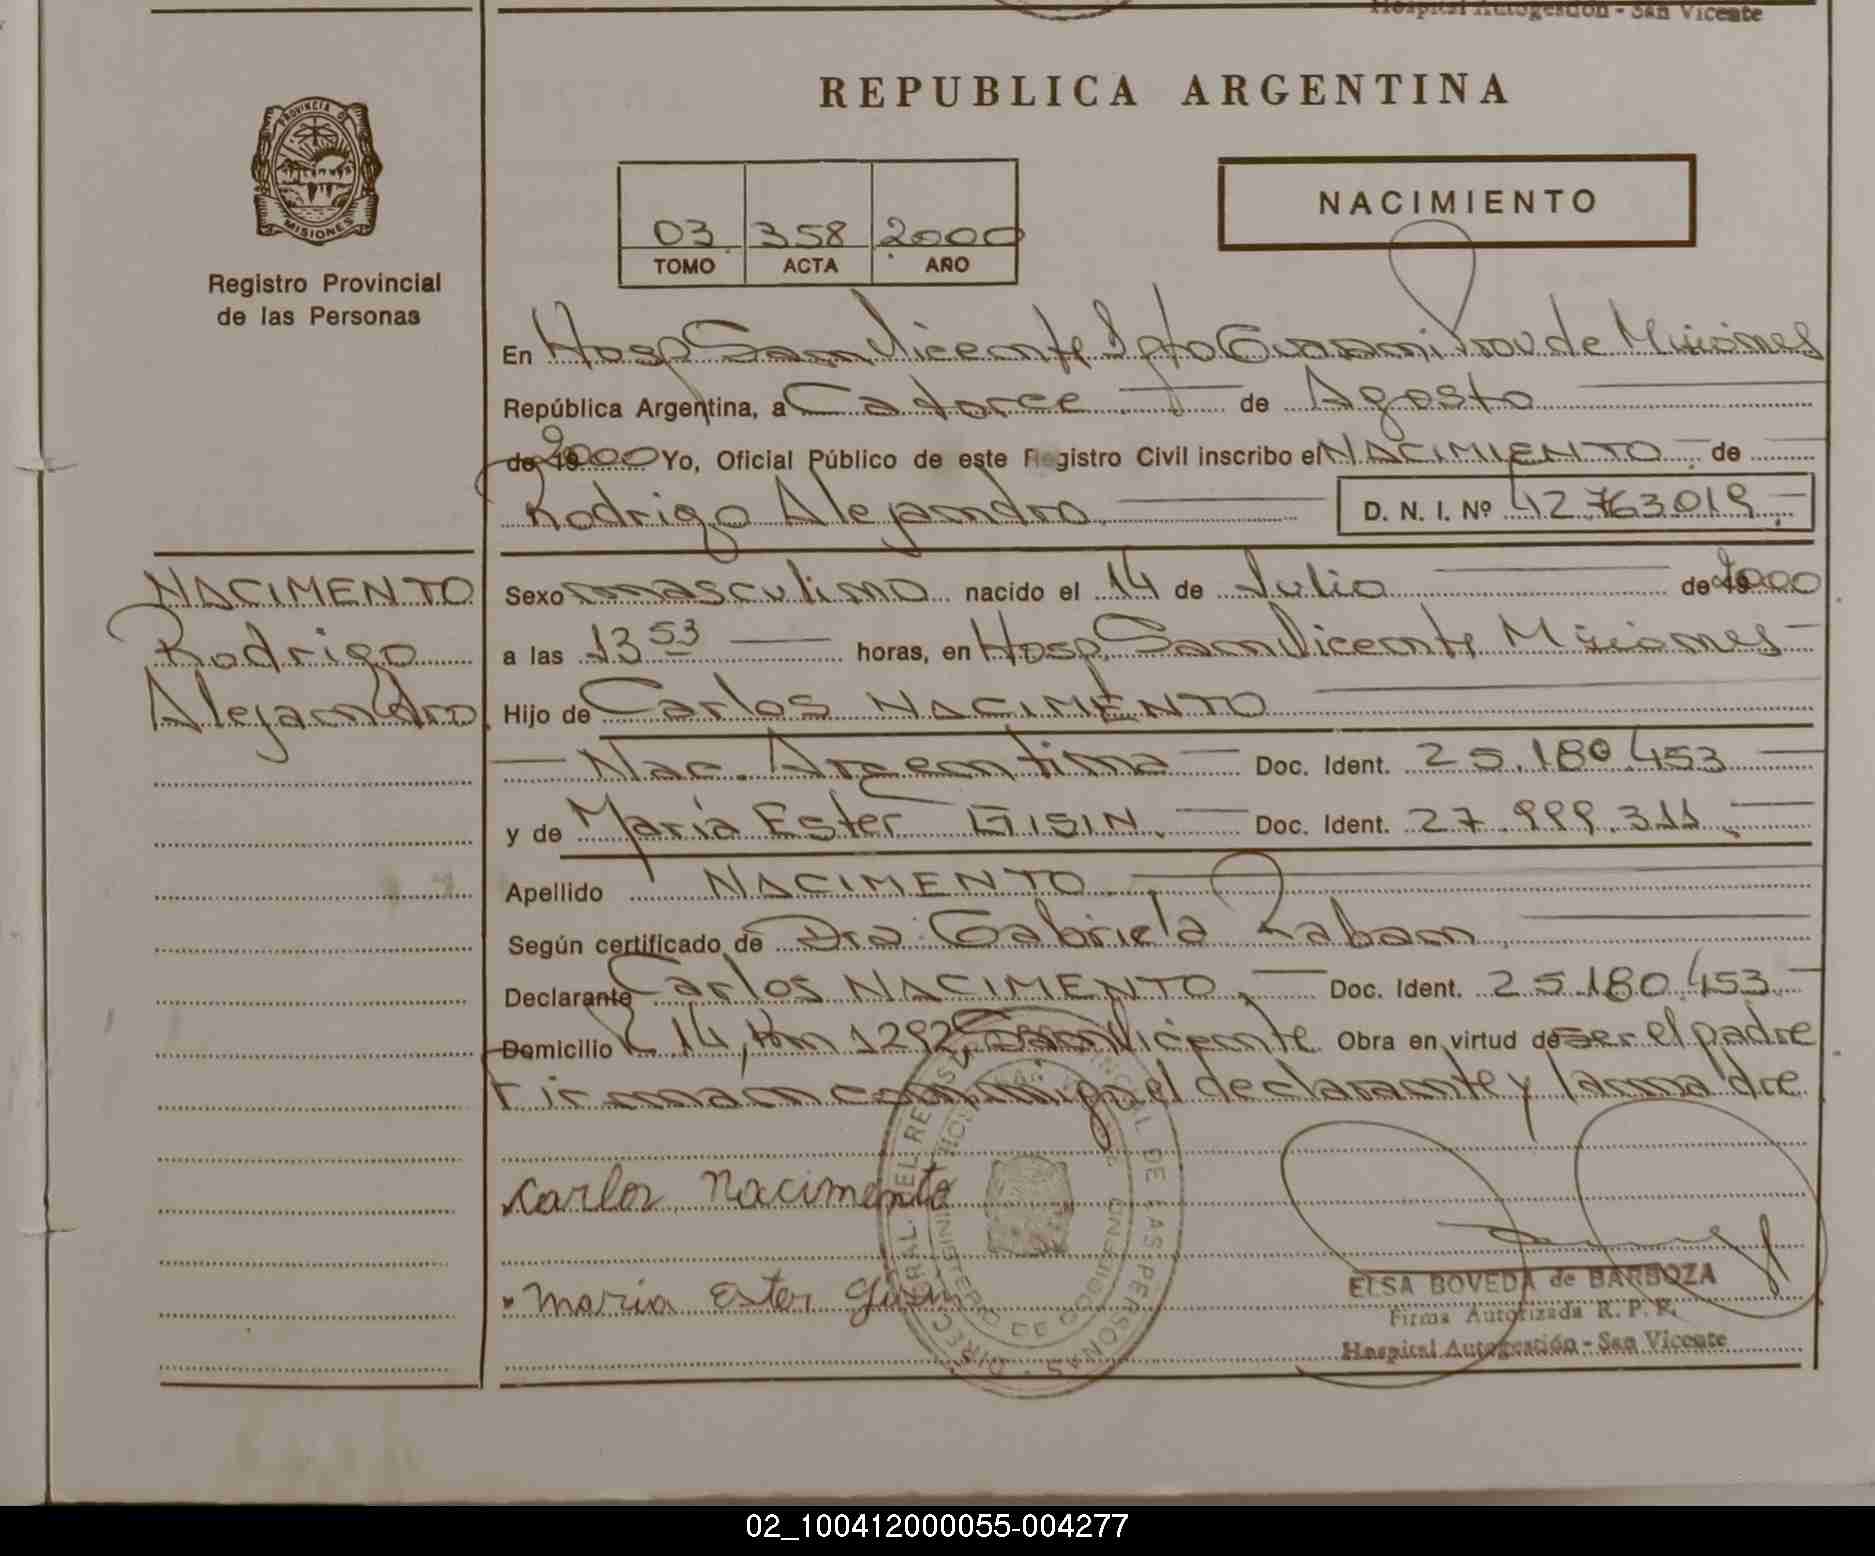 Hospital Autogestión - San Vicente
REPUBLICA ARGENTINA
PROVINCIA DE
MISIONES
Registro Provincial
de las Personas
03 358 2000
TOMO ACTA AÑO
NACIMIENTO
En Hosp San Vicente Dpto Guaraní Prov de Misiones
República Argentina, a Catorce de Agosto
de 19 2000 Yo, Oficial Público de este Registro Civil inscribo el NACIMIENTO de
Rodrigo Alejandro D. N. I. Nº 42.763.019
NACIMENTO
Rodrigo
Alejandro
Sexo masculino nacido el 14 de Julio de 19 2000
a las 13 53 horas, en Hosp. San Vicente Misiones
Hijo de Carlos NACIMENTO
Nac. Argentina Doc. Ident. 25.180.453
y de María Ester GISIN. Doc. Ident. 27.999.311
Apellido NACIMENTO
Según certificado de Dra. Gabriela Laban
Declarante Carlos NACIMENTO, Doc. Ident. 25.180.453
Domicilio R 14, Km 1292, San Vicente Obra en virtud de ser el padre
Firman conmigo el declarante y la madre
Carlos Nacimento
Maria Ester Gisin
DIREC. GRAL. DEL REGISTRO PROVINCIAL DE LAS PERSONAS
MINISTERIO DE GOBIERNO
ELSA BOVEDA de BARBOZA
Firma Autorizada R. P. P.
Hospital Autogestión - San Vicente
02_100412000055-004277